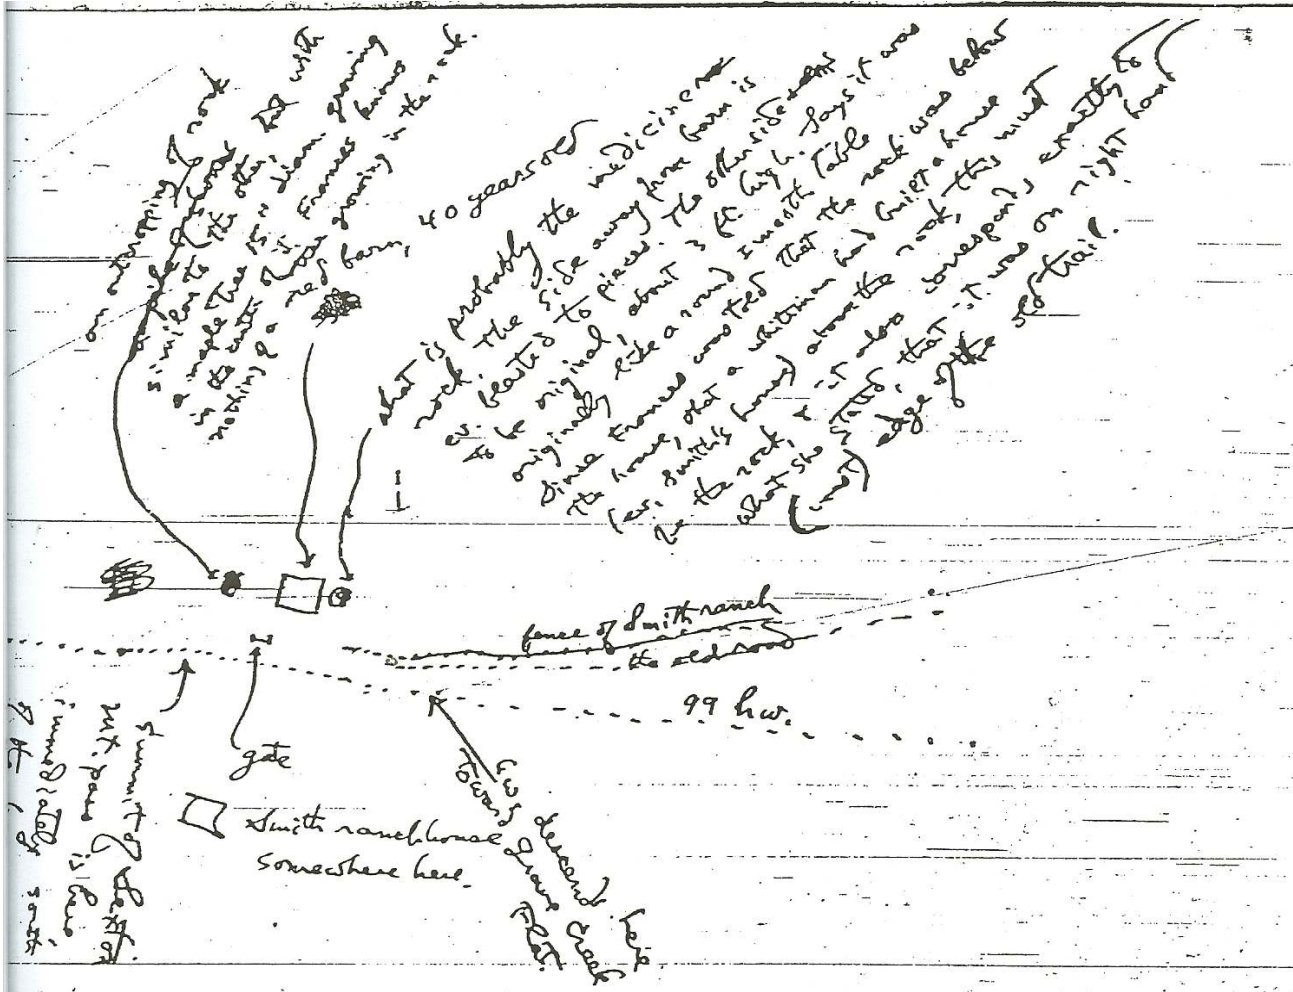 an outcropping of rock
similar to the other, but with
a maple tree in diam growing
in the earth Frances knows
nothing of a growing in the rock.
red barn, 40 years old
what is probably the medicine
rock. The side away from barn is
ev. blasted to pieces. The other side
to be original, about 3 ft. high. Says it was
originally like a round 1 month table
Since Frances was told that the rock was below
the house, that a whiteman had built a house
(ev. Smith's house) above the rock, this must
be the rock, & it also corresponds exactly to
what she stated, that it was on right hand
(west) edge of the old trail.
fence of Smith ranch
the old road
99 hw.
gate
Smith ranchhouse
somewhere here.
hwy descends here
toward Grave Creek
Flat.
Summit of Sexton
Mt. pass is here,
immediately south
of the